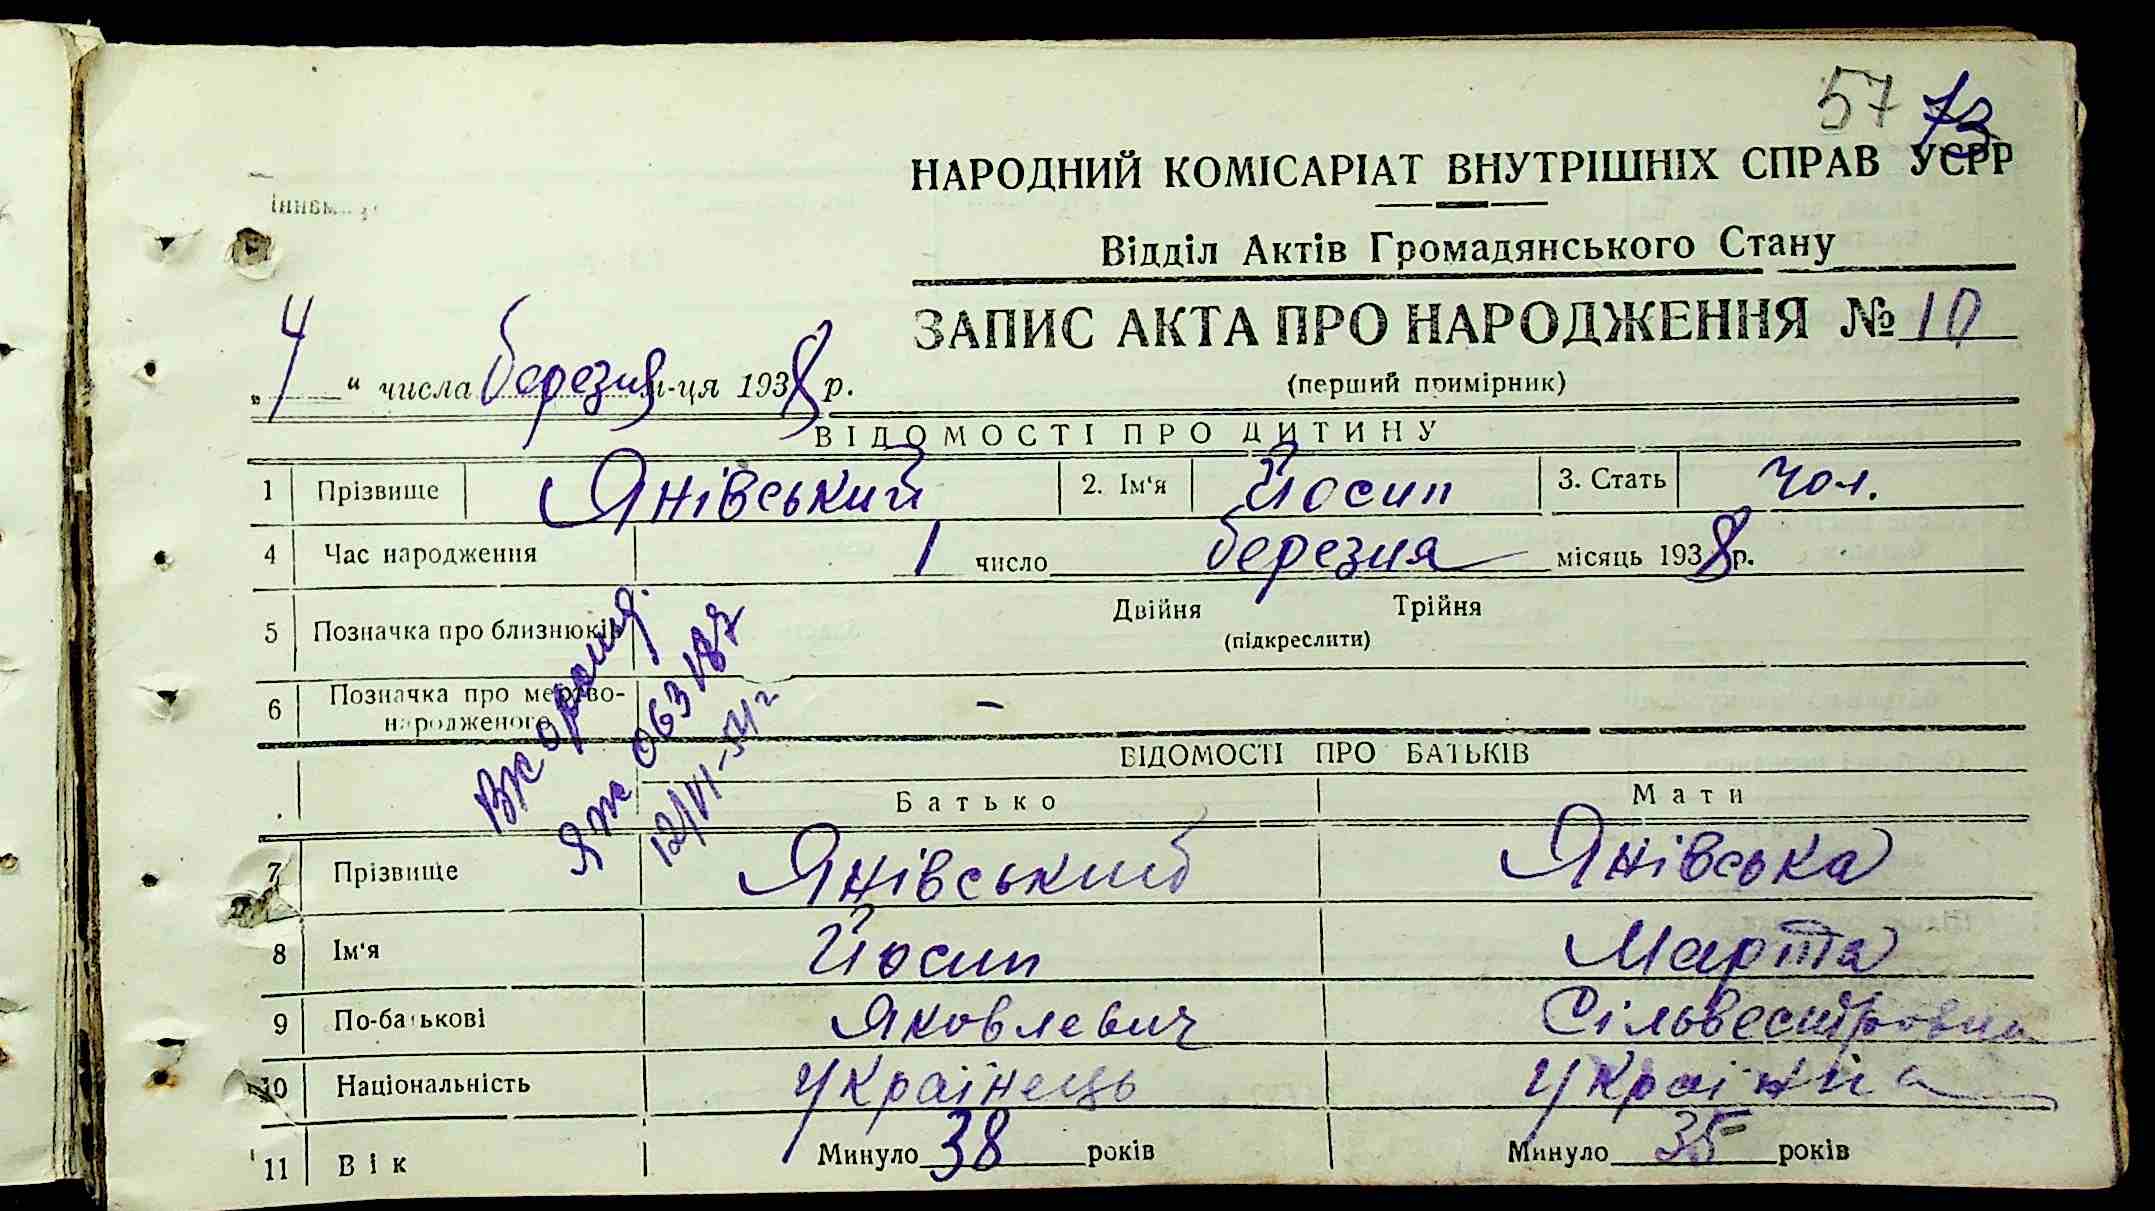 57 73
НАРОДНИЙ КОМІСАРІАТ ВНУТРІШНІХ СПРАВ УСРР
Відділ Актів Громадянського Стану
ЗАПИС АКТА ПРО НАРОДЖЕННЯ № 10
„4“ числа березня м-ця 1938 р.
(перший примірник)
ВІДОМОСТІ ПРО ДИТИНУ
1 Прізвище Янівський 2. Ім'я Йосип 3. Стать чол.
4 Час народження 1 число березня місяць 1938 р.
5 Позначка про близнюків Двійня Трійня
(підкреслити)
6 Позначка про мертво-
народженого –
ВІДОМОСТІ ПРО БАТЬКІВ
Батько Мати
7 Прізвище Янівський Янівська
8 Ім'я Йосип Марта
9 По-батькові Яковлевич Сільвестровна
10 Національність Українець Українка
11 Вік Минуло 38 років Минуло 35 років
063187
12/VI-54 г